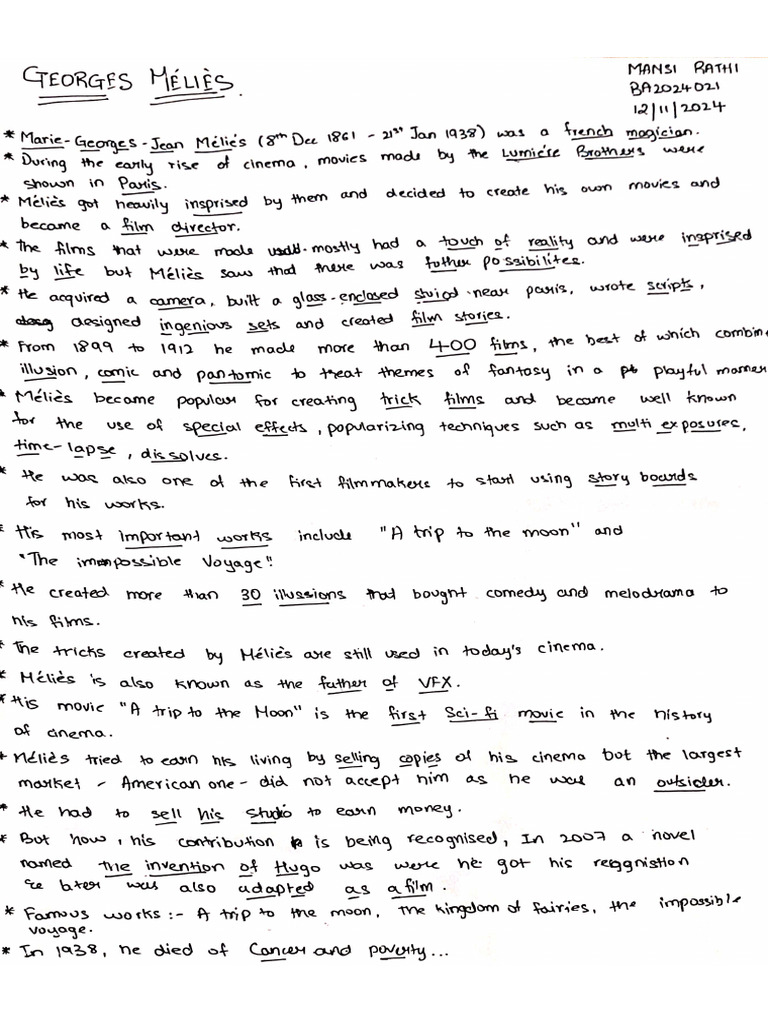 GEORGES MÉLIÈS.
MANSI RATHI
BA2024021
12/11/2024
* Marie-Georges-Jean Méliés (8th Dec 1861 - 21st Jan 1938) was a french magician.
* During the early rise of cinema, movies made by the Lumiére Brothers were
shown in Paris.
* Méliès got heavily insprised by them and decided to create his own movies and
became a film director.
* The films that were made mostly had a touch of reality and were insprised
by life but Méliès saw that there was futher possibilites.
* He acquired a camera, built a glass-enclosed stuiod near paris, wrote scripts,
designed ingenious sets and created film stories.
* From 1899 to 1912 he made more than 400 films, the best of which combin
illusion, comic and pantomic to treat themes of fantasy in a playful manner
* Méliès became popular for creating trick films and became well known
for the use of special effects, popularizing techniques such as multi exposures,
time-lapse, dissolves.
* He was also one of the first filmmakers to start using story boards
for his works.
* His most important works include "A trip to the moon" and
"The impossible Voyage".
* He created more than 30 illussions that bought comedy and melodrama to
his films.
* The tricks created by Méliès are still used in today's cinema.
* Méliès is also known as the father of VFX.
* His movie "A trip to the Moon" is the first Sci-fi movie in the history
of cinema.
* Méliès tried to earn his living by selling copies of his cinema but the largest
market - American one - did not accept him as he was an outsider.
* He had to sell his studio to earn money.
* But now, his contribution is being recognised, In 2007 a novel
named The invention of Hugo was were he got his recgnistion
later was also adapted as a film.
* Famous works :- A trip to the moon, The kingdom of fairies, the impossible
voyage.
* In 1938, he died of Cancer and poverty...